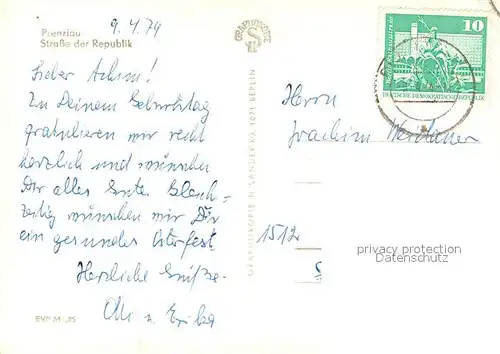 9.4.79
Prenzlau
Straße der Republik
Lieber Achim!
Zu Deinem Geburtstag
gratulieren wir recht
herzlich und wünschen
Dir alles Gute. Gleich-
zeitig wünschen wir Dir
ein gesundes Osterfest.
Herzliche Grüße
u. Erika
EVP M
GRAPHOKOPIE H. SANDER KG, 1071 BERLIN
GRAPHOKOPIE
10
DEUTSCHE DEMOKRATISCHE REPUBLIK
Herrn
Joachim
1512
privacy protection
Datenschutz